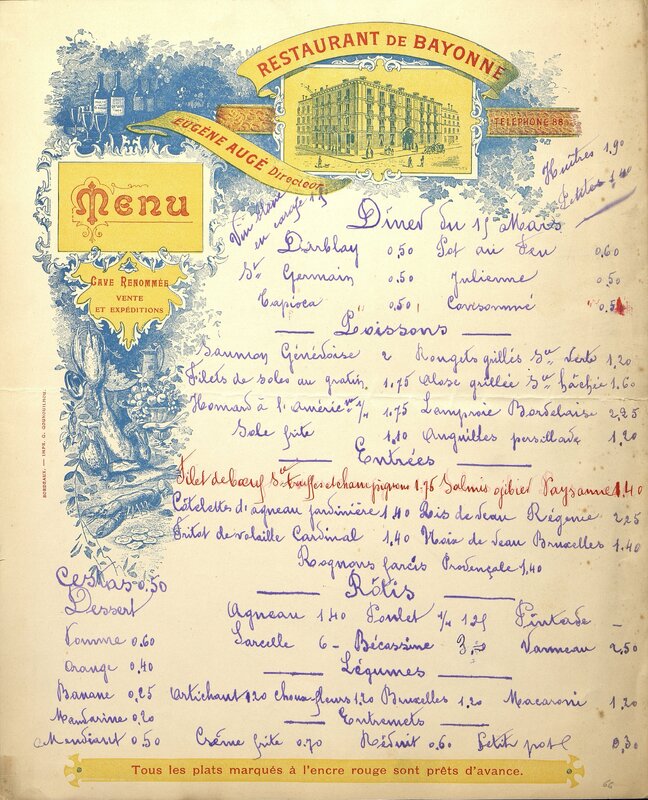 RESTAURANT DE BAYONNE
TÉLÉPHONE 88
EUGÈNE AUGÉ Directeur
Huîtres 1,90
Petites 1,40
Menu
Vin blanc
en carafe
CAVE RENOMMÉE
VENTE
ET EXPÉDITIONS
Dîner du 15 Mars
Darblay 0,50 Pot au Feu 0,60
St Germain 0,50 Julienne 0,50
Tapioca 0,50 Consommé
Poissons
Saumon Génevoise 2 Rougets grillés Sce Verte 1,20
Filets de soles au gratin 1.75 Alose grillée Sce hâchée 1.60
Homard à l'Améric ne 1/4 1.75 Lamproie Bordelaise 2.25
Sole frite 1.10 Anguilles persillade 1,20
Entrées
Filet de bœuf Sce truffes et champignons 1.75 Salmis gibier Paysanne 1.40
Côtelettes d'agneau jardinière 1.40 Rois de veau Régence 2.25
Fritot de volaille Cardinal 1,40 Noix de veau Bruxelles 1.40
Rognons farcis Provençale 1,40
Rôtis
Agneau 1.40 Poulet 1/4 1.25 Pintade –
Sarcelle 6 – Bécassine Vanneau 2,50
Légumes
Artichaut 1.20 Chouxfleurs 1.20 Bruxelles 1.20 Macaroni 1,20
Entremets
Crême frite 0.70 Réduit 0.60 Petit pot 0,30
Cestas 0,50
Dessert
Pomme 0.60
Orange 0,40
Banane 0,25
Mandarine 0,20
Mendiant 0,50
Tous les plats marqués à l'encre rouge sont prêts d'avance.
BORDEAUX. — IMPR. G. GOUNOUILHOU.
66